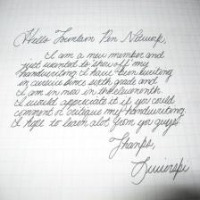 Hello Fountain Pen Network,
I am a new member and
just wanted to show off my
handwriting. I have been writing
in cursive since sixth grade and
I am in now in the eleventh
I would appreciate it if you could
comment or critique my handwriting
I hope to learn alot from you guys
Thanks,